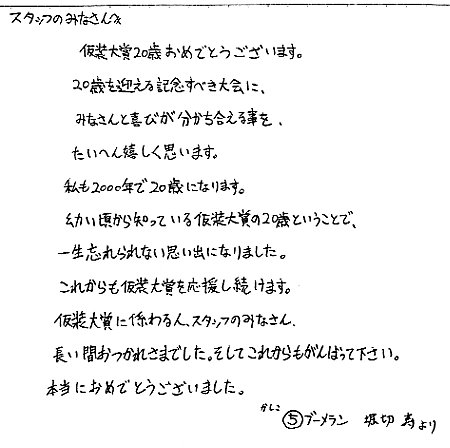 スタッフのみなさんへ
仮装大賞20歳おめでとうございます。
20歳を迎える記念すべき大会に、
みなさんと喜びが分かち合える事を、
たいへん嬉しく思います。
私も2000年で20歳になります。
幼い頃から知っている仮装大賞の20歳ということで、
一生忘れられない思い出になりました。
これからも仮装大賞を応援し続けます。
仮装大賞に係わる人、スタッフのみなさん、
長い間おつかれさまでした。そしてこれからもがんばって下さい。
本当におめでとうございました。
かしこ
⑤ブーメラン 堀切 寿より